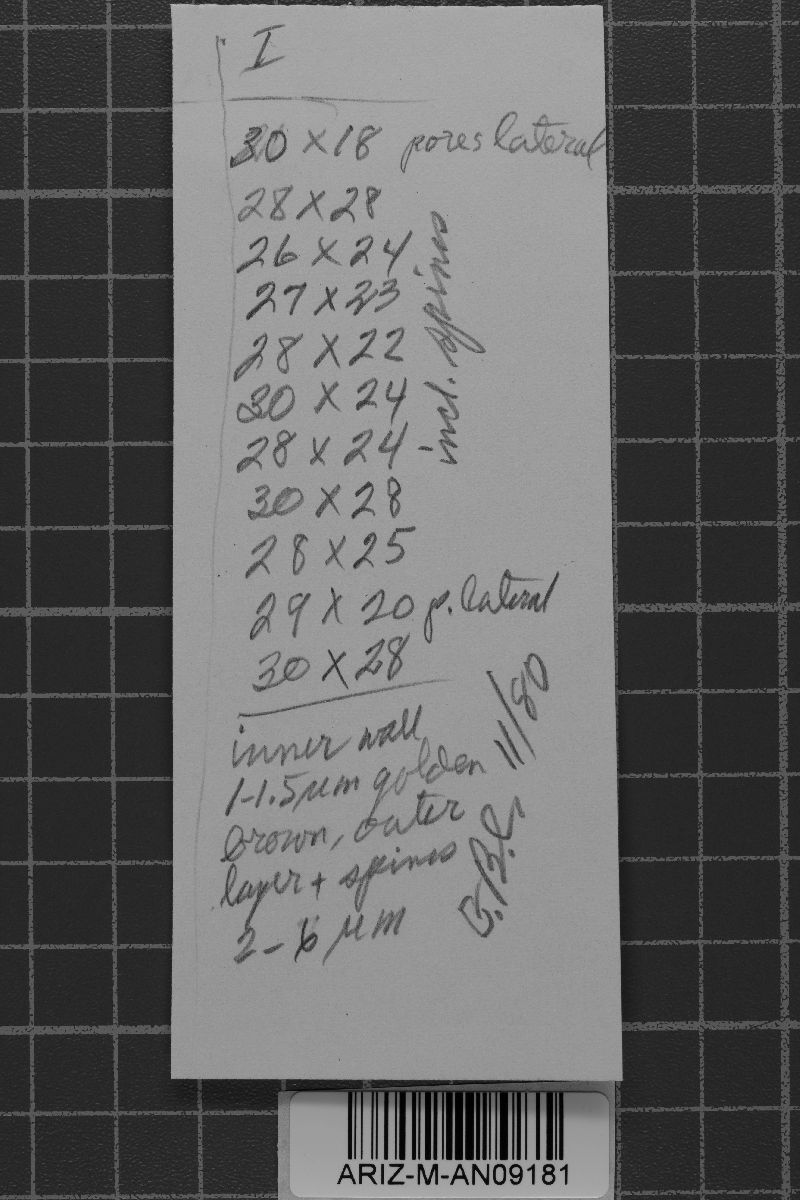 I
30 X 18 pores lateral
28 X 28
26 X 24
27 X 23
28 X 22
30 X 24
28 X 24
incl. spines
30 X 28
28 X 25
29 X 20 p. lateral
30 X 28
inner wall
1-1.5 µm golden
brown, outer
layer + spines
2-6 µm
G.B.C. 11/80
ARIZ-M-AN09181